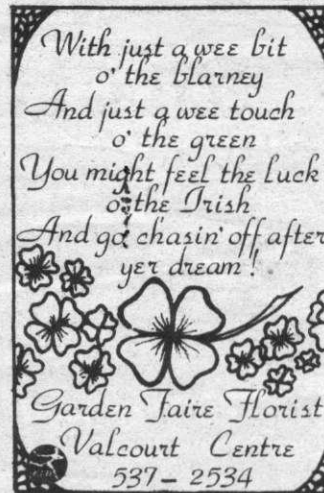 With just a wee bit
o' the blarney
And just a wee touch
o' the green
You might feel the luck
o' the Irish
And go chasin' off after
yer dream!
Garden Faire Florist
Valcourt Centre
537-2534